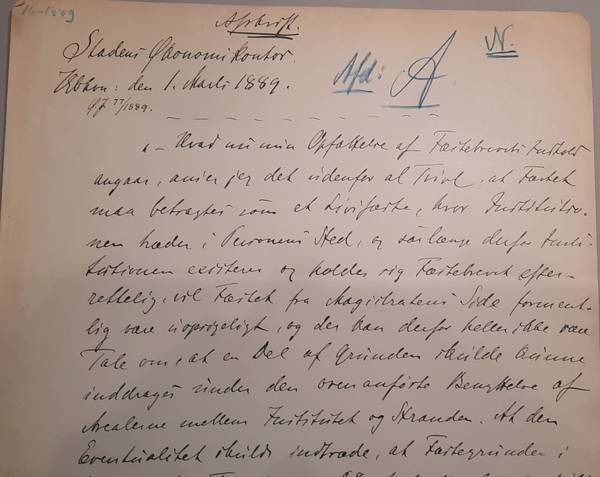 16-1889
Afskrift.
Stadens Økonomikontor.
Kbhvn: den 1. Marts 1889.
77/1889.
Afd: A
N.
"– Hvad nu min Opfattelse af Fæstebrevets Indhold
angaar, anser jeg det udenfor al Tvivl, at Fæstet
maa betragtes som et Livsfæste, hvor Institutio-
nen træder i Personens Sted, og saalænge derfor Insti-
tutionen existerer og holder sig Fæstebrevet efter-
rettelig, vil Fæstet fra Magistratens Side forment-
lig være uopsigeligt, og der kan derfor heller ikke være
Tale om, at en Del af Grunden skulde kunne
inddrages under den ovenanførte Benyttelse af
Arealerne mellem Institutet og Stranden. At den
Eventualitet skulde indtræde, at Fæstegrunden i